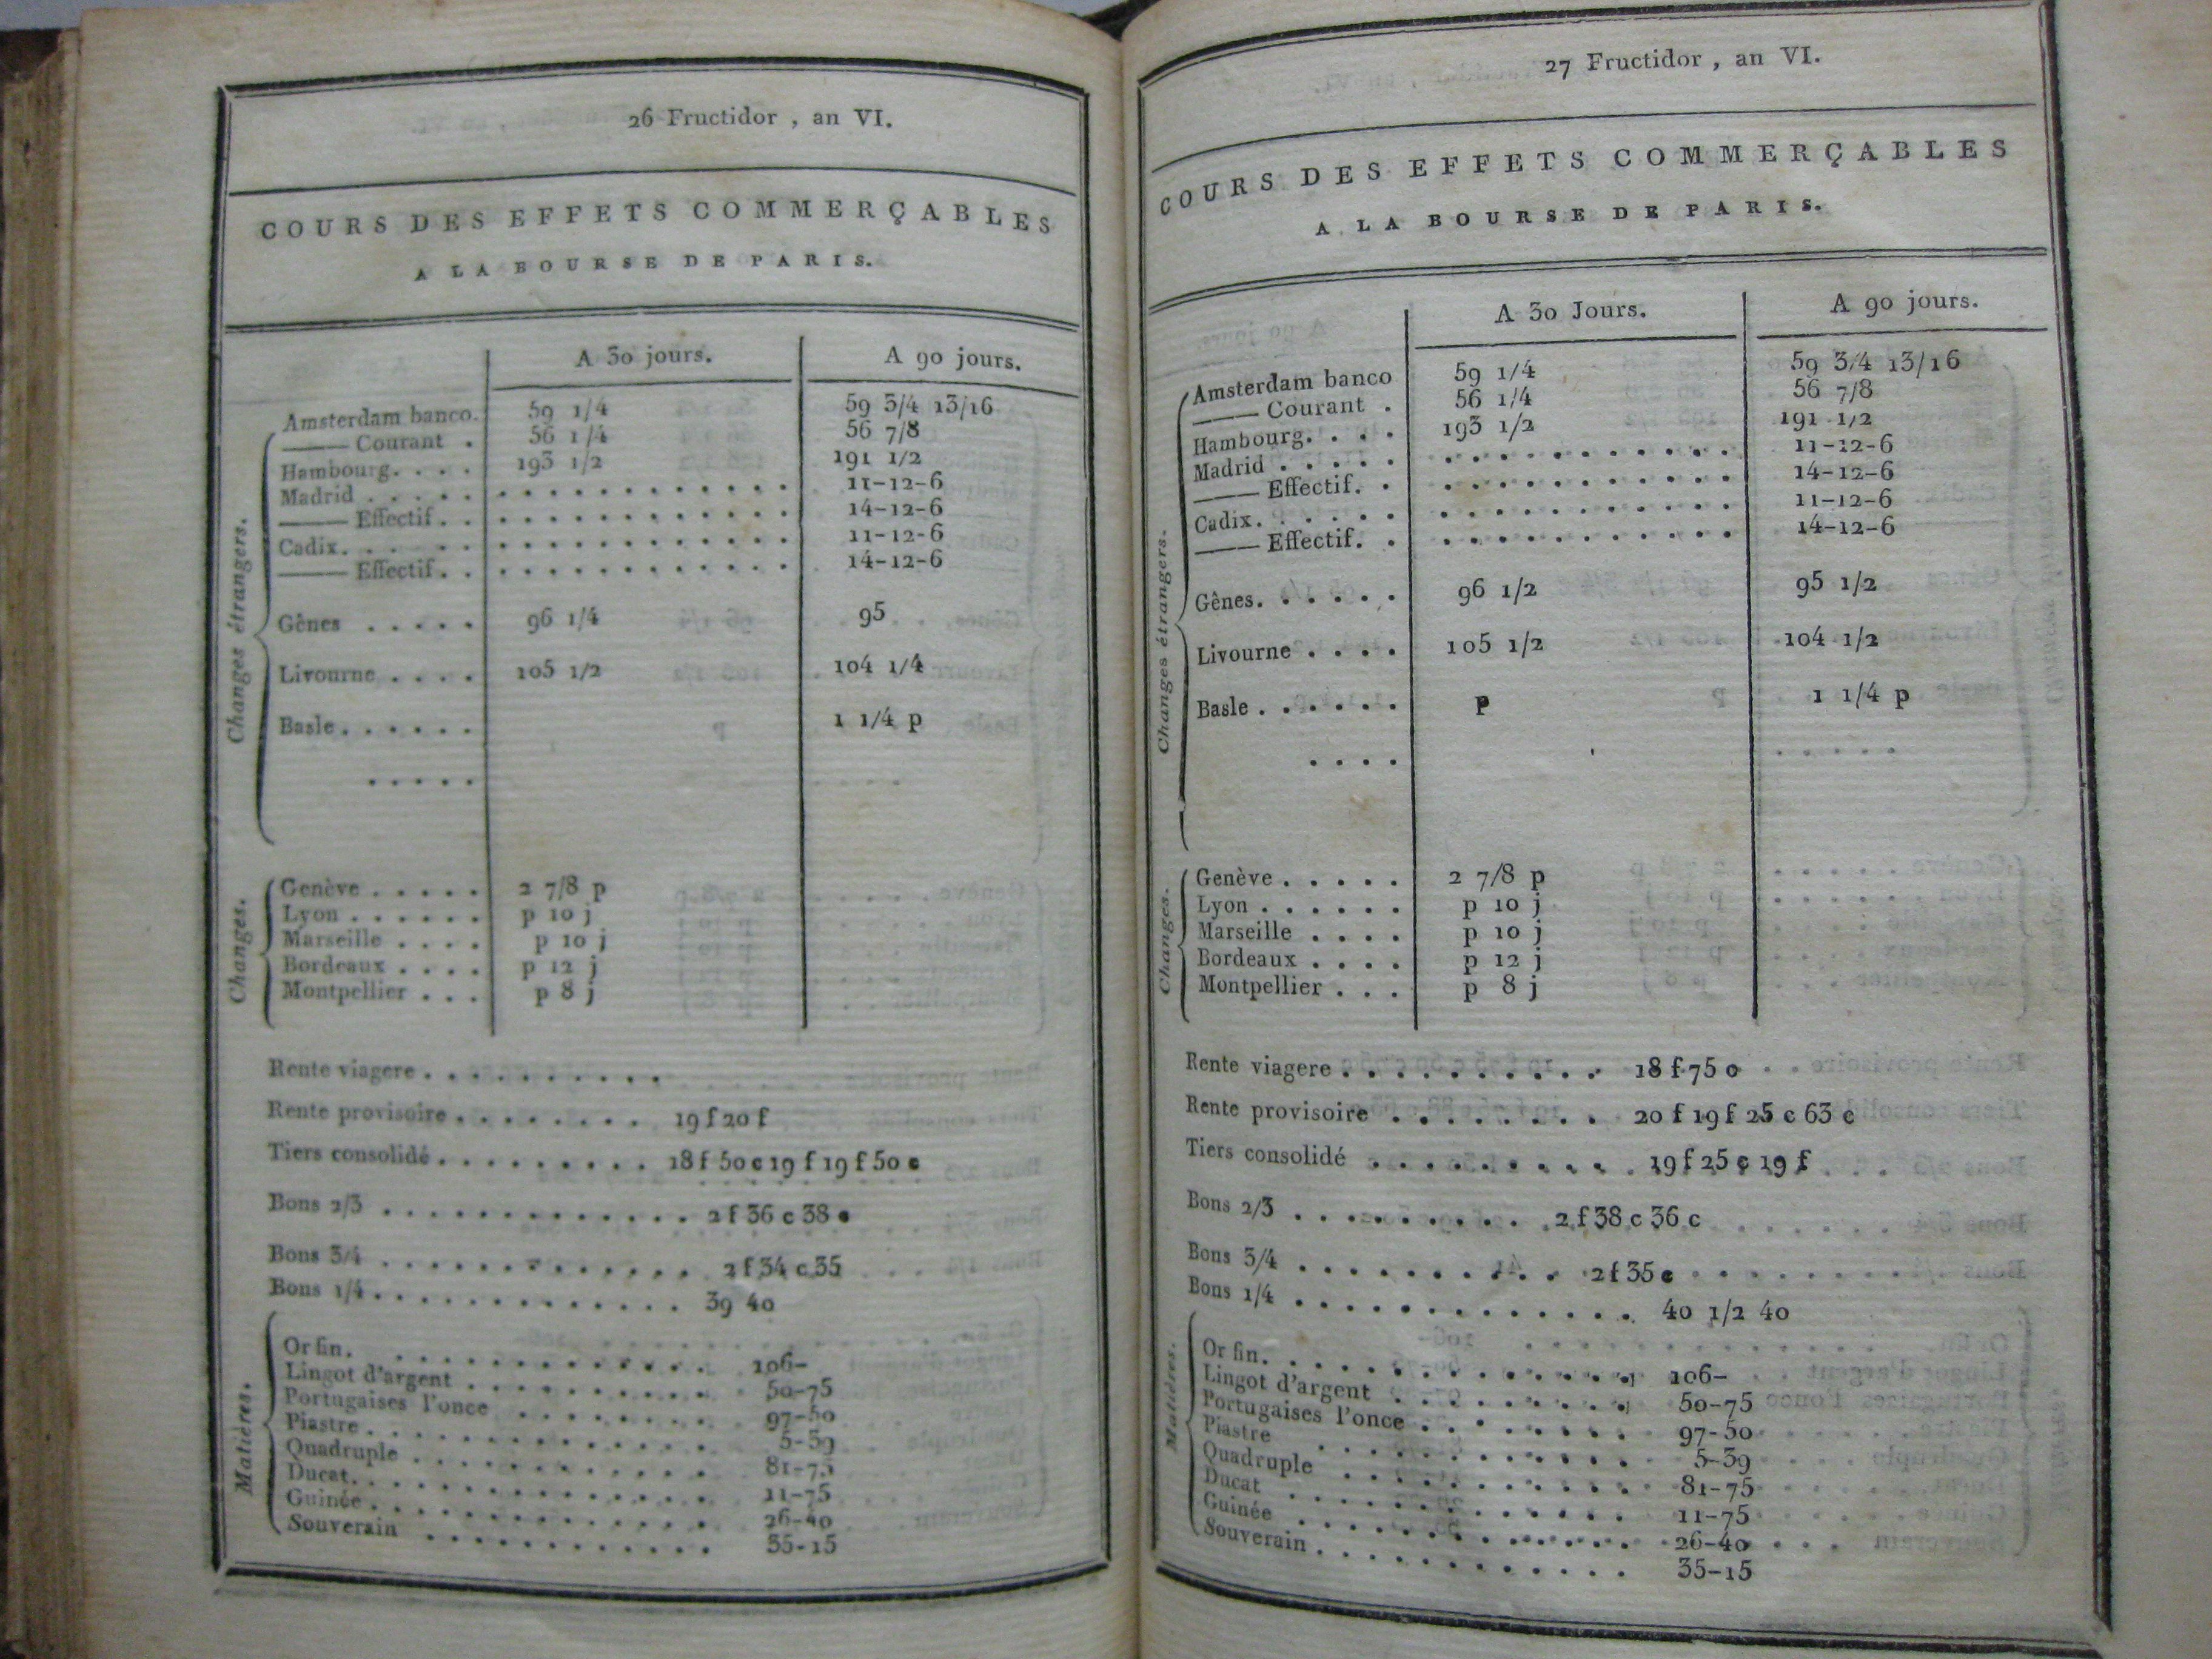 26 Fructidor , an VI.
COURS DES EFFETS COMMERÇABLES
A LA BOURSE DE PARIS.
A 30 jours. A 90 jours.
Changes étrangers.
Amsterdam banco. 59 1/4 59 3/4 13/16
—— Courant . 56 1/4 56 7/8
Hambourg. . . . 193 1/2 191 1/2
Madrid . . . . . . . . . . . . . . . . . 11-12-6
—— Effectif . . . . . . . . . . . . . . 14-12-6
Cadix. . . . . . . . . . . . . . . . . . 11-12-6
—— Effectif . . . . . . . . . . . . . . 14-12-6
Gênes . . . . . 96 1/4 95
Livourne . . . . 105 1/2 104 1/4
Basle . . . . . . 1 1/4 p
. . . . .
Changes.
Genève . . . . . 2 7/8 p
Lyon . . . . . . p 10 j
Marseille . . . . p 10 j
Bordeaux . . . . p 12 j
Montpellier . . . p 8 j
Rente viagere . . . . . . . . . .
Rente provisoire . . . . . . . . 19 f 20 f
Tiers consolidé . . . . . . . . . 18 f 50 c 19 f 19 f 50 c
Bons 2/3 . . . . . . . . . . . . . 2 f 36 c 38 c
Bons 3/4 . . . . . . . . . . . . . 2 f 34 c 35
Bons 1/4 . . . . . . . . . . . . . 39 40
Matières.
Or fin. . . . . . . . . . . . . . 106-
Lingot d'argent . . . . . . . . . . 50-75
Portugaises l'once . . . . . . . . 97-50
Piastre . . . . . . . . . . . . . . 5-39
Quadruple . . . . . . . . . . . . 81-75
Ducat. . . . . . . . . . . . . . . 11-75
Guinée . . . . . . . . . . . . . . 26-40
Souverain . . . . . . . . . . . . 35-15
27 Fructidor , an VI.
COURS DES EFFETS COMMERÇABLES
A LA BOURSE DE PARIS.
A 30 Jours. A 90 jours.
Changes étrangers.
Amsterdam banco 59 1/4 59 3/4 13/16
—— Courant . 56 1/4 56 7/8
Hambourg. . . . 193 1/2 191 1/2
Madrid . . . . . . . . . . . . . . . . 11-12-6
—— Effectif. . . . . . . . . . . . . 14-12-6
Cadix. . . . . . . . . . . . . . . . . 11-12-6
—— Effectif. . . . . . . . . . . . . 14-12-6
Gênes. . . . . . 96 1/2 95 1/2
Livourne . . . . 105 1/2 104 1/2
Basle . . . . . . p 1 1/4 p
. . . . . . . . .
Changes.
Genève . . . . . 2 7/8 p
Lyon . . . . . . p 10 j
Marseille . . . . p 10 j
Bordeaux . . . . p 12 j
Montpellier . . . p 8 j
Rente viagere . . . . . . . . . . 18 f 75 o
Rente provisoire . . . . . . . . 20 f 19 f 25 c 63 c
Tiers consolidé . . . . . . . . . 19 f 25 c 19 f
Bons 2/3 . . . . . . . . . . 2 f 38 c 36 c
Bons 3/4 . . . . . . . . . . 2 f 35 c
Bons 1/4 . . . . . . . . . . . . . 40 1/2 40
Matières.
Or fin. . . . . . . . . . . . . . 106-
Lingot d'argent . . . . . . . . . 50-75
Portugaises l'once . . . . . . . . 97-50
Piastre . . . . . . . . . . . . . 5-39
Quadruple . . . . . . . . . . . . 81-75
Ducat . . . . . . . . . . . . . . 11-75
Guinée . . . . . . . . . . . . . . 26-40
Souverain . . . . . . . . . . . . 35-15